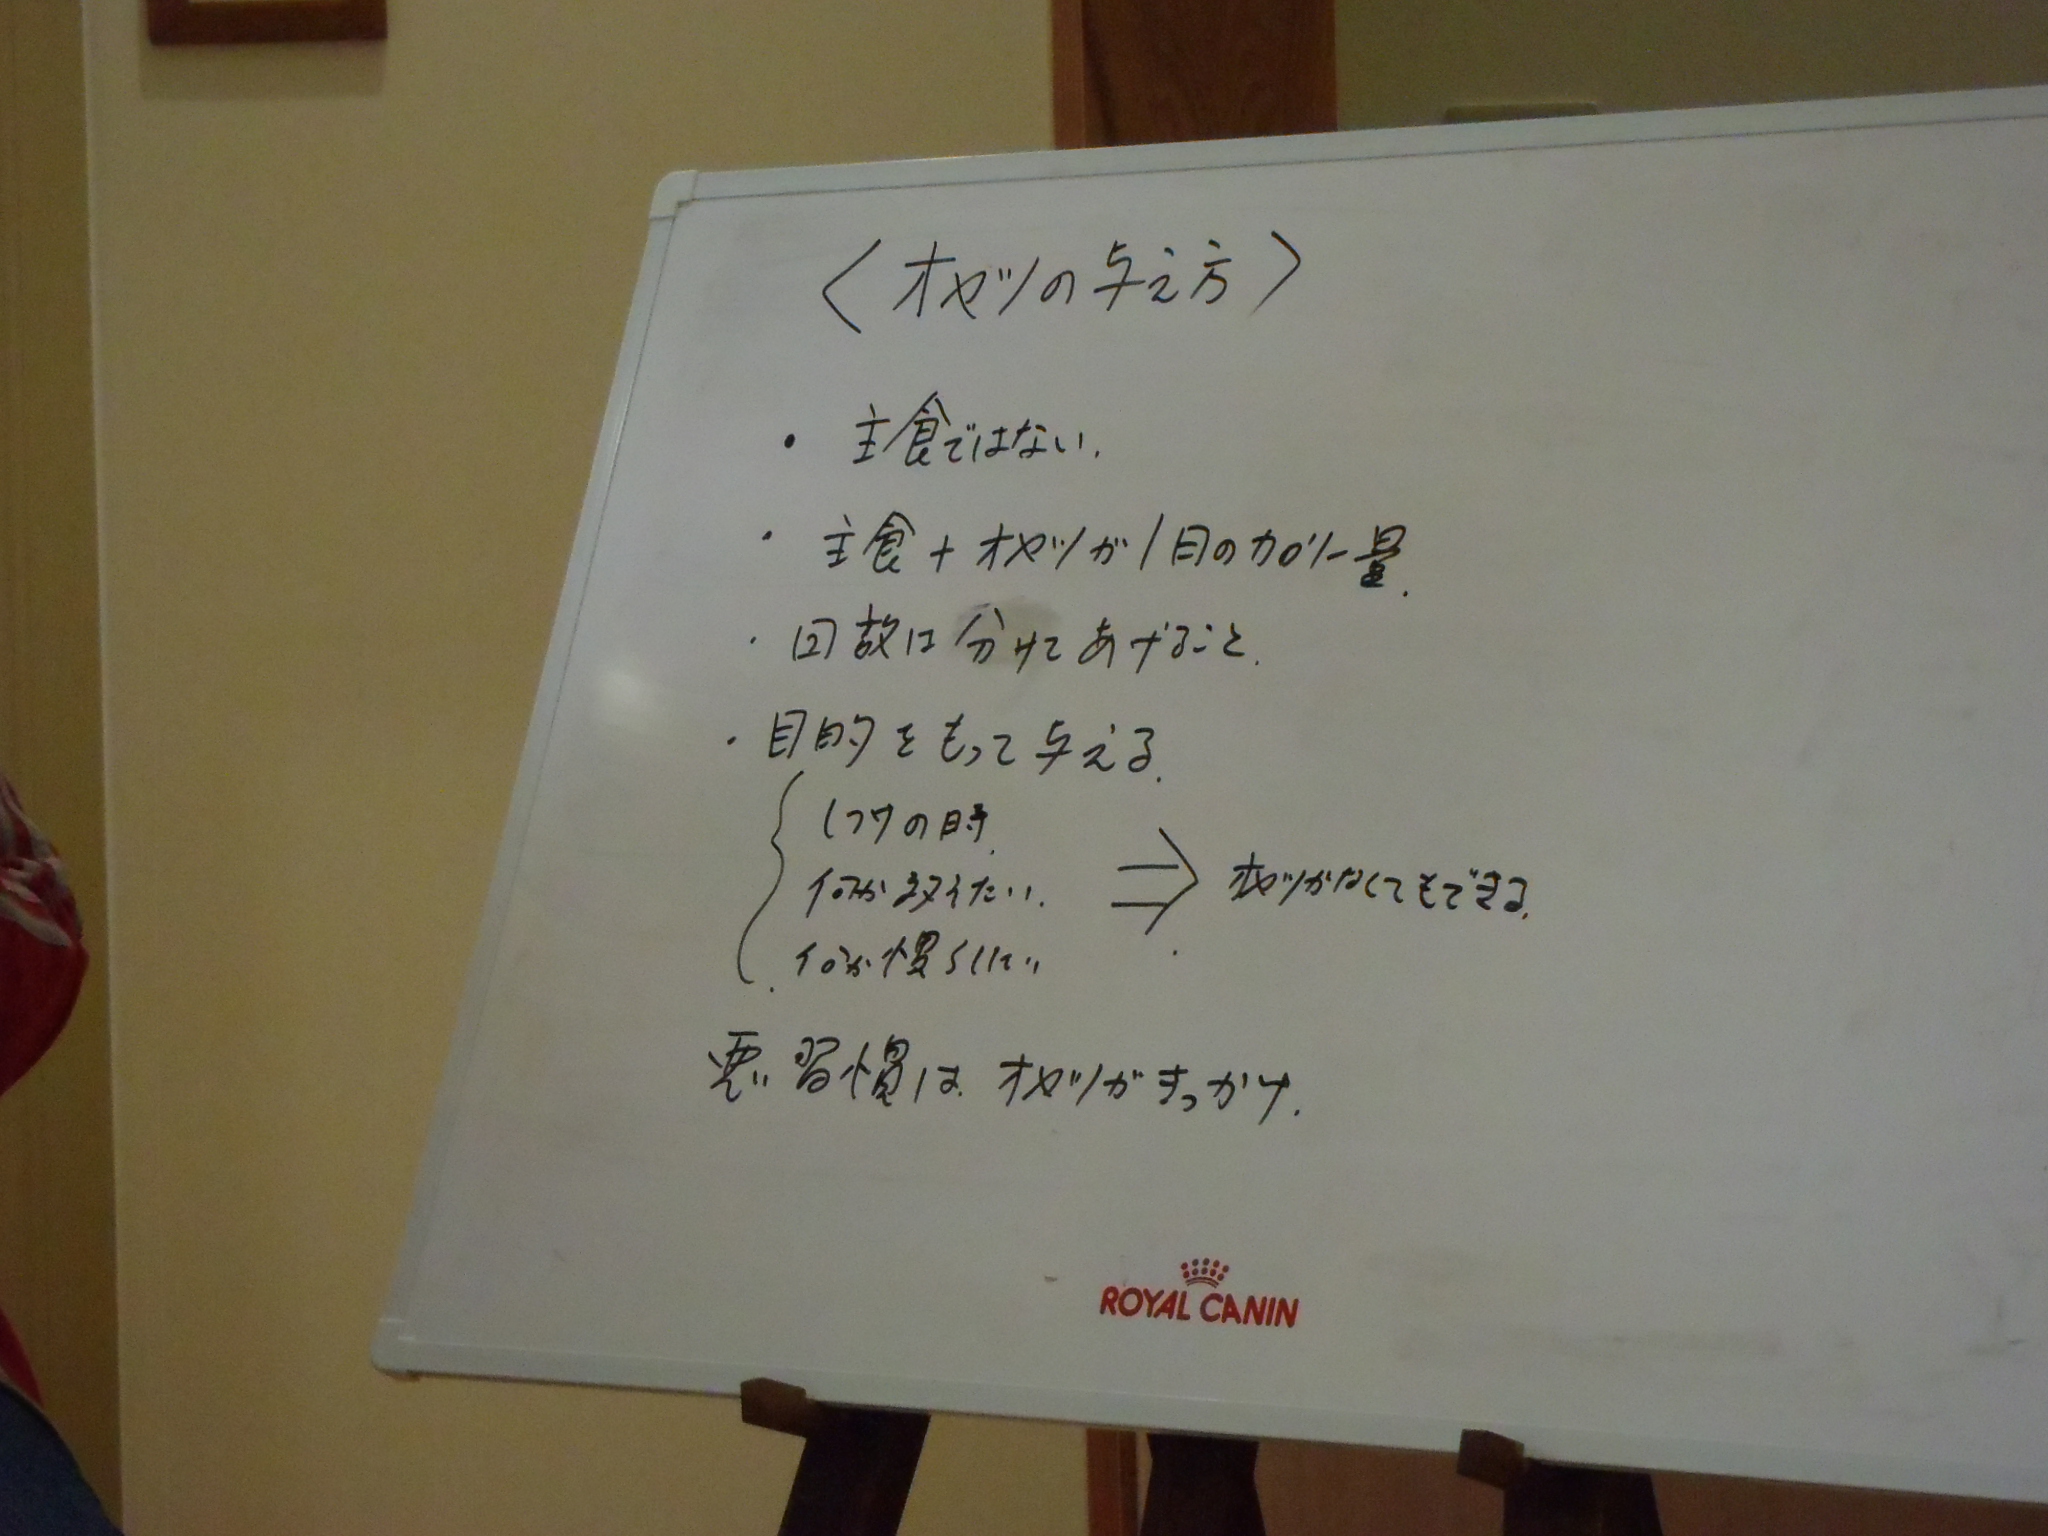 〈オヤツの与え方〉
・主食ではない.
・主食+オヤツが1日のカロリー量.
・回数は分けてあげること.
・目的をもって与える.
しつけの時.
何か教えたい.
何か慣らしたい
⇒ オヤツがなくてもできる.
悪い習慣は オヤツがきっかけ.
ROYAL CANIN